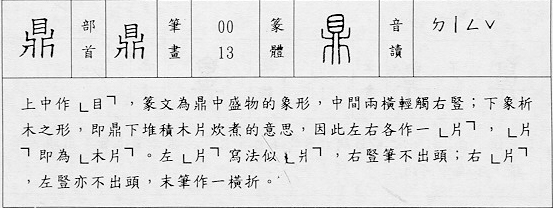 鼎 部首 鼎 筆畫 00 13 篆體 鼎 音讀 ㄉㄧㄥˇ
上中作「目」,篆文為鼎中盛物的象形,中間兩橫輕觸右豎;下象析
木之形,即鼎下堆積木片炊煮的意思,因此左右各作一「片」,「片
」即為「木片」。左「片」寫法似「片」,右豎筆不出頭;右「片」
,左豎亦不出頭,末筆作一橫折。